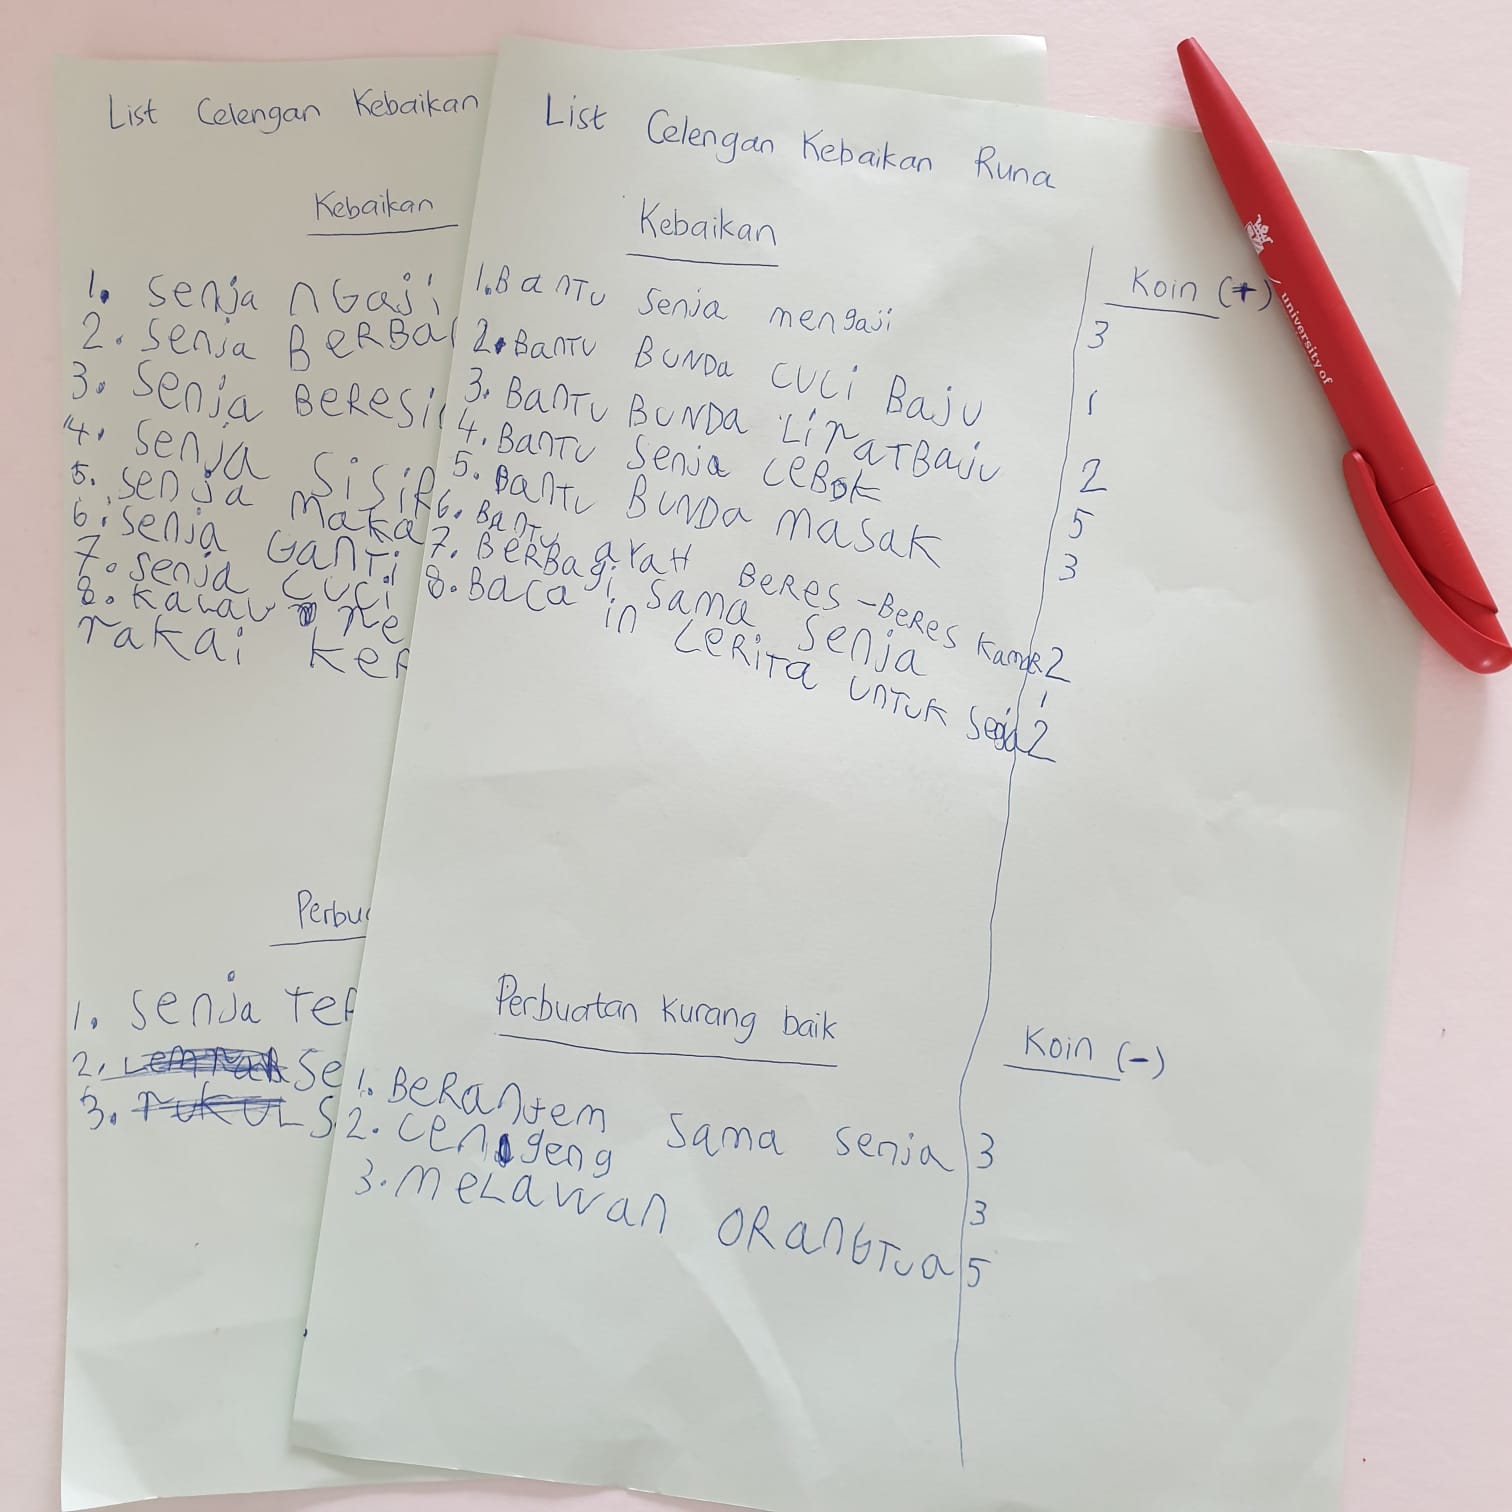 List Celengan Kebaikan
Kebaikan
1. senja nGaji
2. senja BeRBa
3. senja BeResi
4. senja sisiR
5. senja maka
6. senja Ganti
7. senja cuci
8. kaLau
Pakai keR
Perbu
1. senja TeR
2. se
3. S
List Celengan Kebaikan Runa
Kebaikan
Koin (+)
1. BanTu senja mengaji 3
2. BanTu BUNDa cuci Baju 1
3. BanTu BUNDa LiPaTBaju 2
4. BanTu senja ceBok 5
5. BanTu BUNDa masak 3
6. BanTu ayaH BeRes-BeRes kamaR 2
7. BeRBagi sama senja 1
8. Bacain ceRiTa unTuk senja 2
Perbuatan kurang baik
Koin (-)
1. BeRanTem sama senja 3
2. cengeng 3
3. meLawan ORanGTua 5
university of